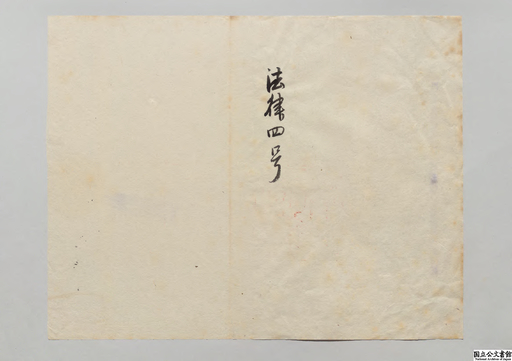 法律四号
国立公文書館
National Archives of Japan